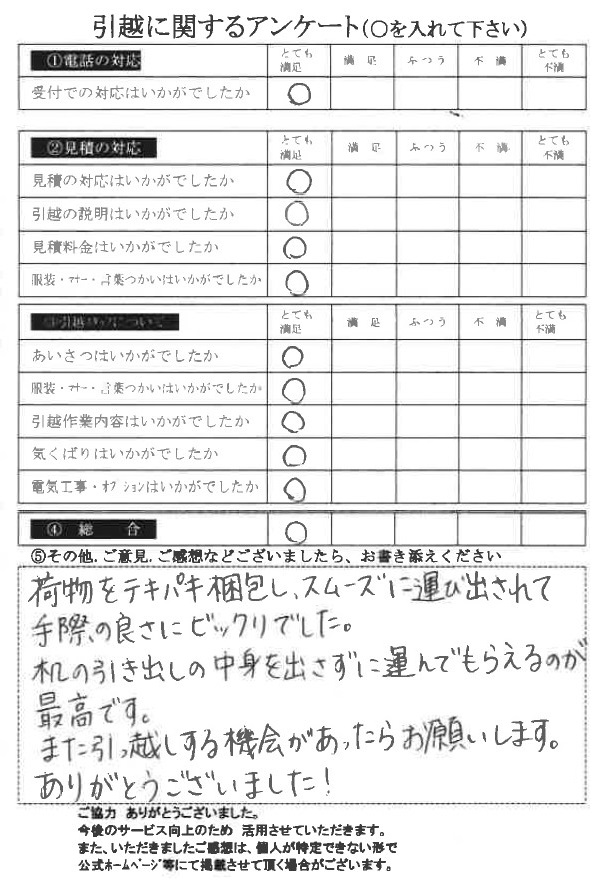 引越に関するアンケート(〇を入れて下さい)
①電話の対応 とても満足 満足 ふつう 不満 とても不満
受付での対応はいかがでしたか 〇
②見積の対応 とても満足 満足 ふつう 不満 とても不満
見積の対応はいかがでしたか 〇
引越の説明はいかがでしたか 〇
見積料金はいかがでしたか 〇
服装・マナー・言葉つかいはいかがでしたか 〇
③引越スタッフについて とても満足 満足 ふつう 不満 とても不満
あいさつはいかがでしたか 〇
服装・マナー・言葉つかいはいかがでしたか 〇
引越作業内容はいかがでしたか 〇
気くばりはいかがでしたか 〇
電気工事・オプションはいかがでしたか 〇
④ 総 合 〇
⑤その他、ご意見、ご感想などございましたら、お書き添えください
荷物をテキパキ梱包し、スムーズに運び出されて
手際の良さにビックリでした。
机の引き出しの中身を出さずに運んでもらえるのが
最高です。
また引っ越しする機会があったらお願いします。
ありがとうございました!
ご協力 ありがとうございました。
今後のサービス向上のため 活用させていただきます。
また、いただきましたご感想は、個人が特定できない形で
公式ホームページ等にて掲載させて頂く場合がございます。